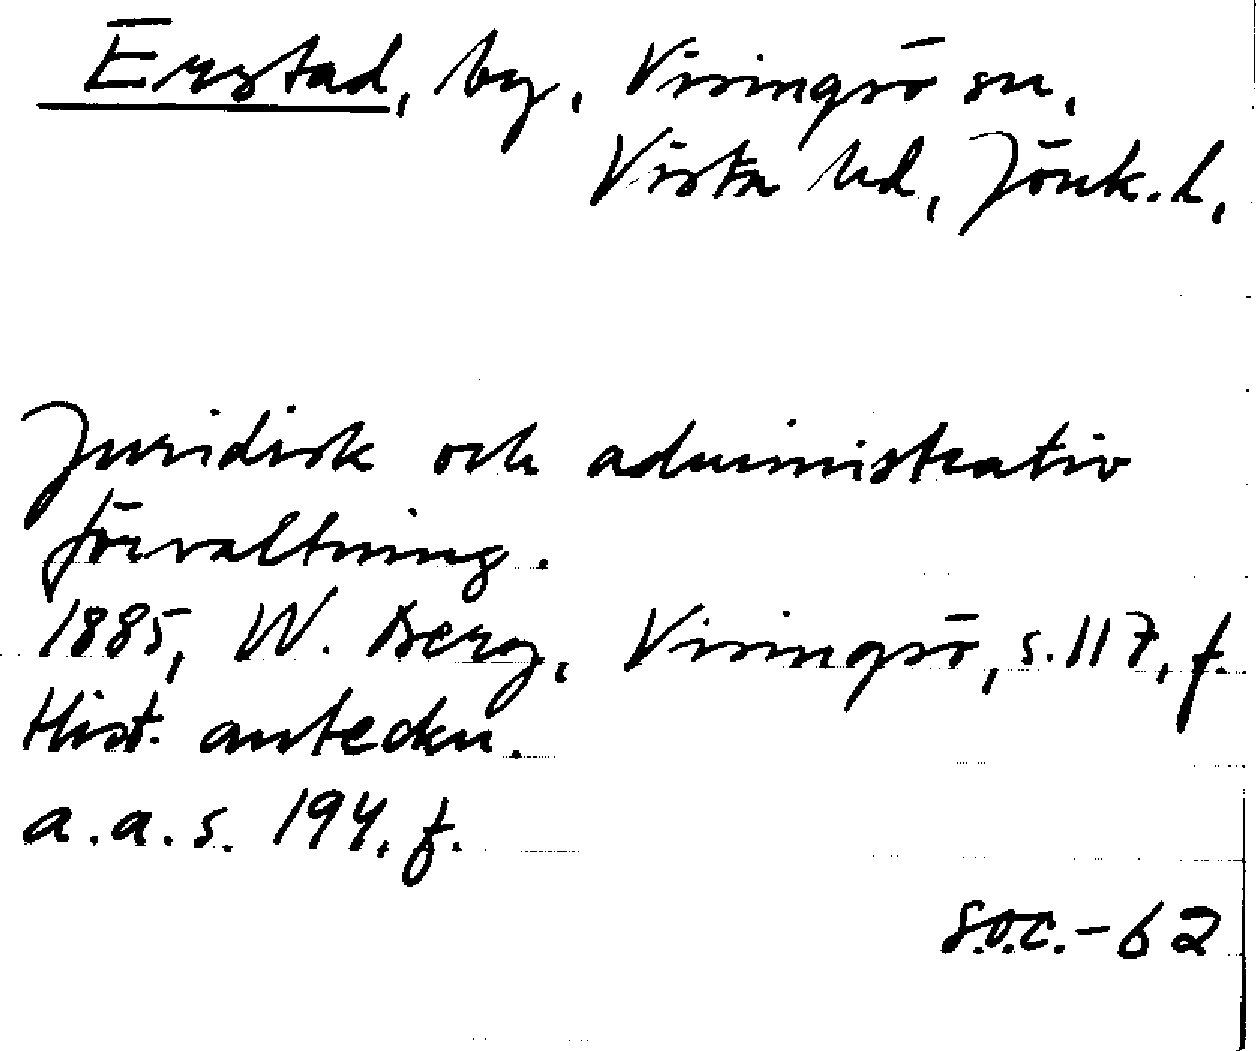 Erstad, by, Visingsö sn,
Vista hd, Jönk. l,
Juridisk och administrativ
förvaltning.
1885, W. Berg, Visingsö, s. 117, f.
Hist. anteckn.
a. a. s. 194, f.
S.O.C. - 62